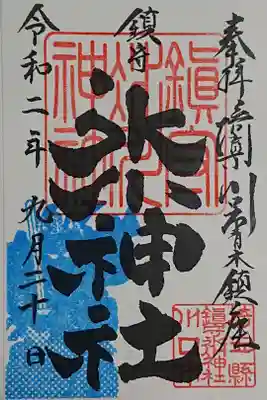 奉拝
青木鎮座
鎮守
氷川神社
令和二年 九月二十日
鎮守
氷川
神社
鎮守氷川神社